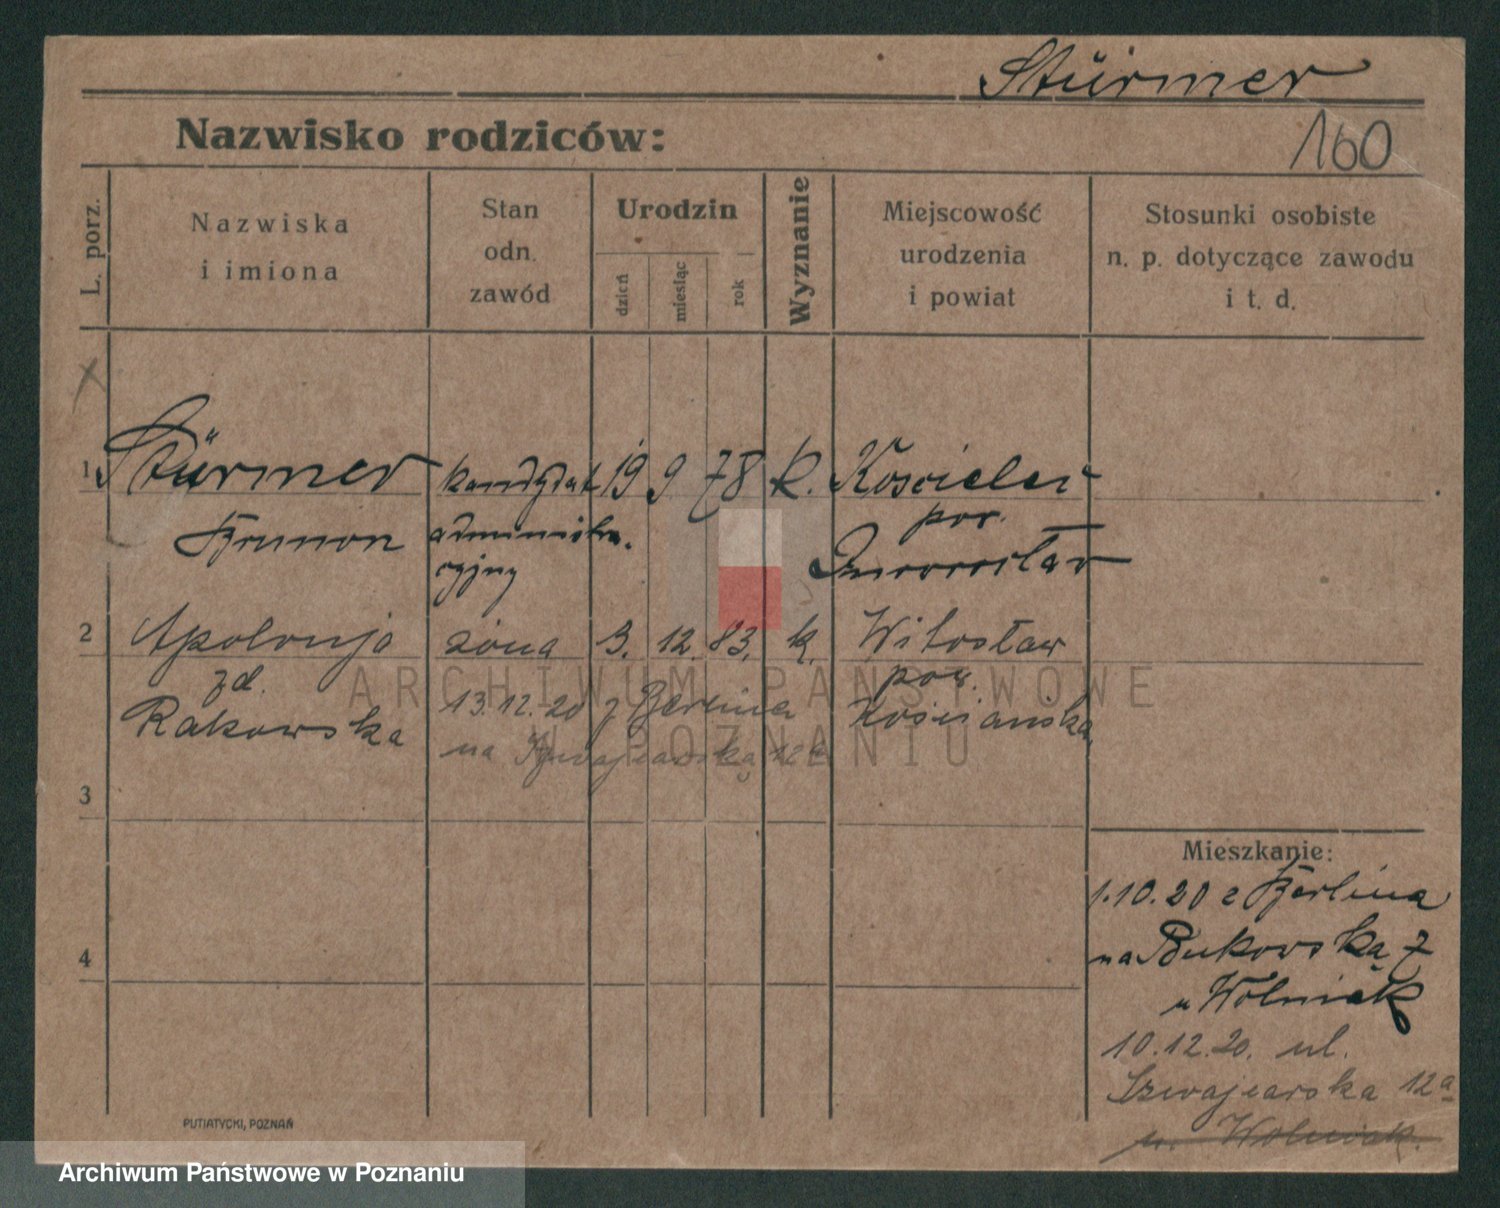 Stürmer
Nazwisko rodziców:
160
L. porz.
Nazwiska
i imiona
Stan
odn.
zawód
Urodzin
dzień
miesiąc
rok
Wyznanie
Miejscowość
urodzenia
i powiat
Stosunki osobiste
n. p. dotyczące zawodu
i t. d.
1 Stürmer kandydat 19 9 78 k. Kościelec
Brunon administra-
cyjny
pow.
Inowrocław
2 Apolonja żona 9. 12. 83. k. Witosław
zd.
Rakowska
pow.
Kościańska
13.12.20 z Berlina
na Szwajcarską 12a
3
4
Mieszkanie:
1.10.20 z Berlina
na Bukowską 7
u Wolniak
10.12.20. ul.
Szwajcarska 12a
u. Wolniak.
PUTIATYCKI, POZNAŃ
ARCHIWUM PAŃSTWOWE
W POZNANIU
Archiwum Państwowe w Poznaniu